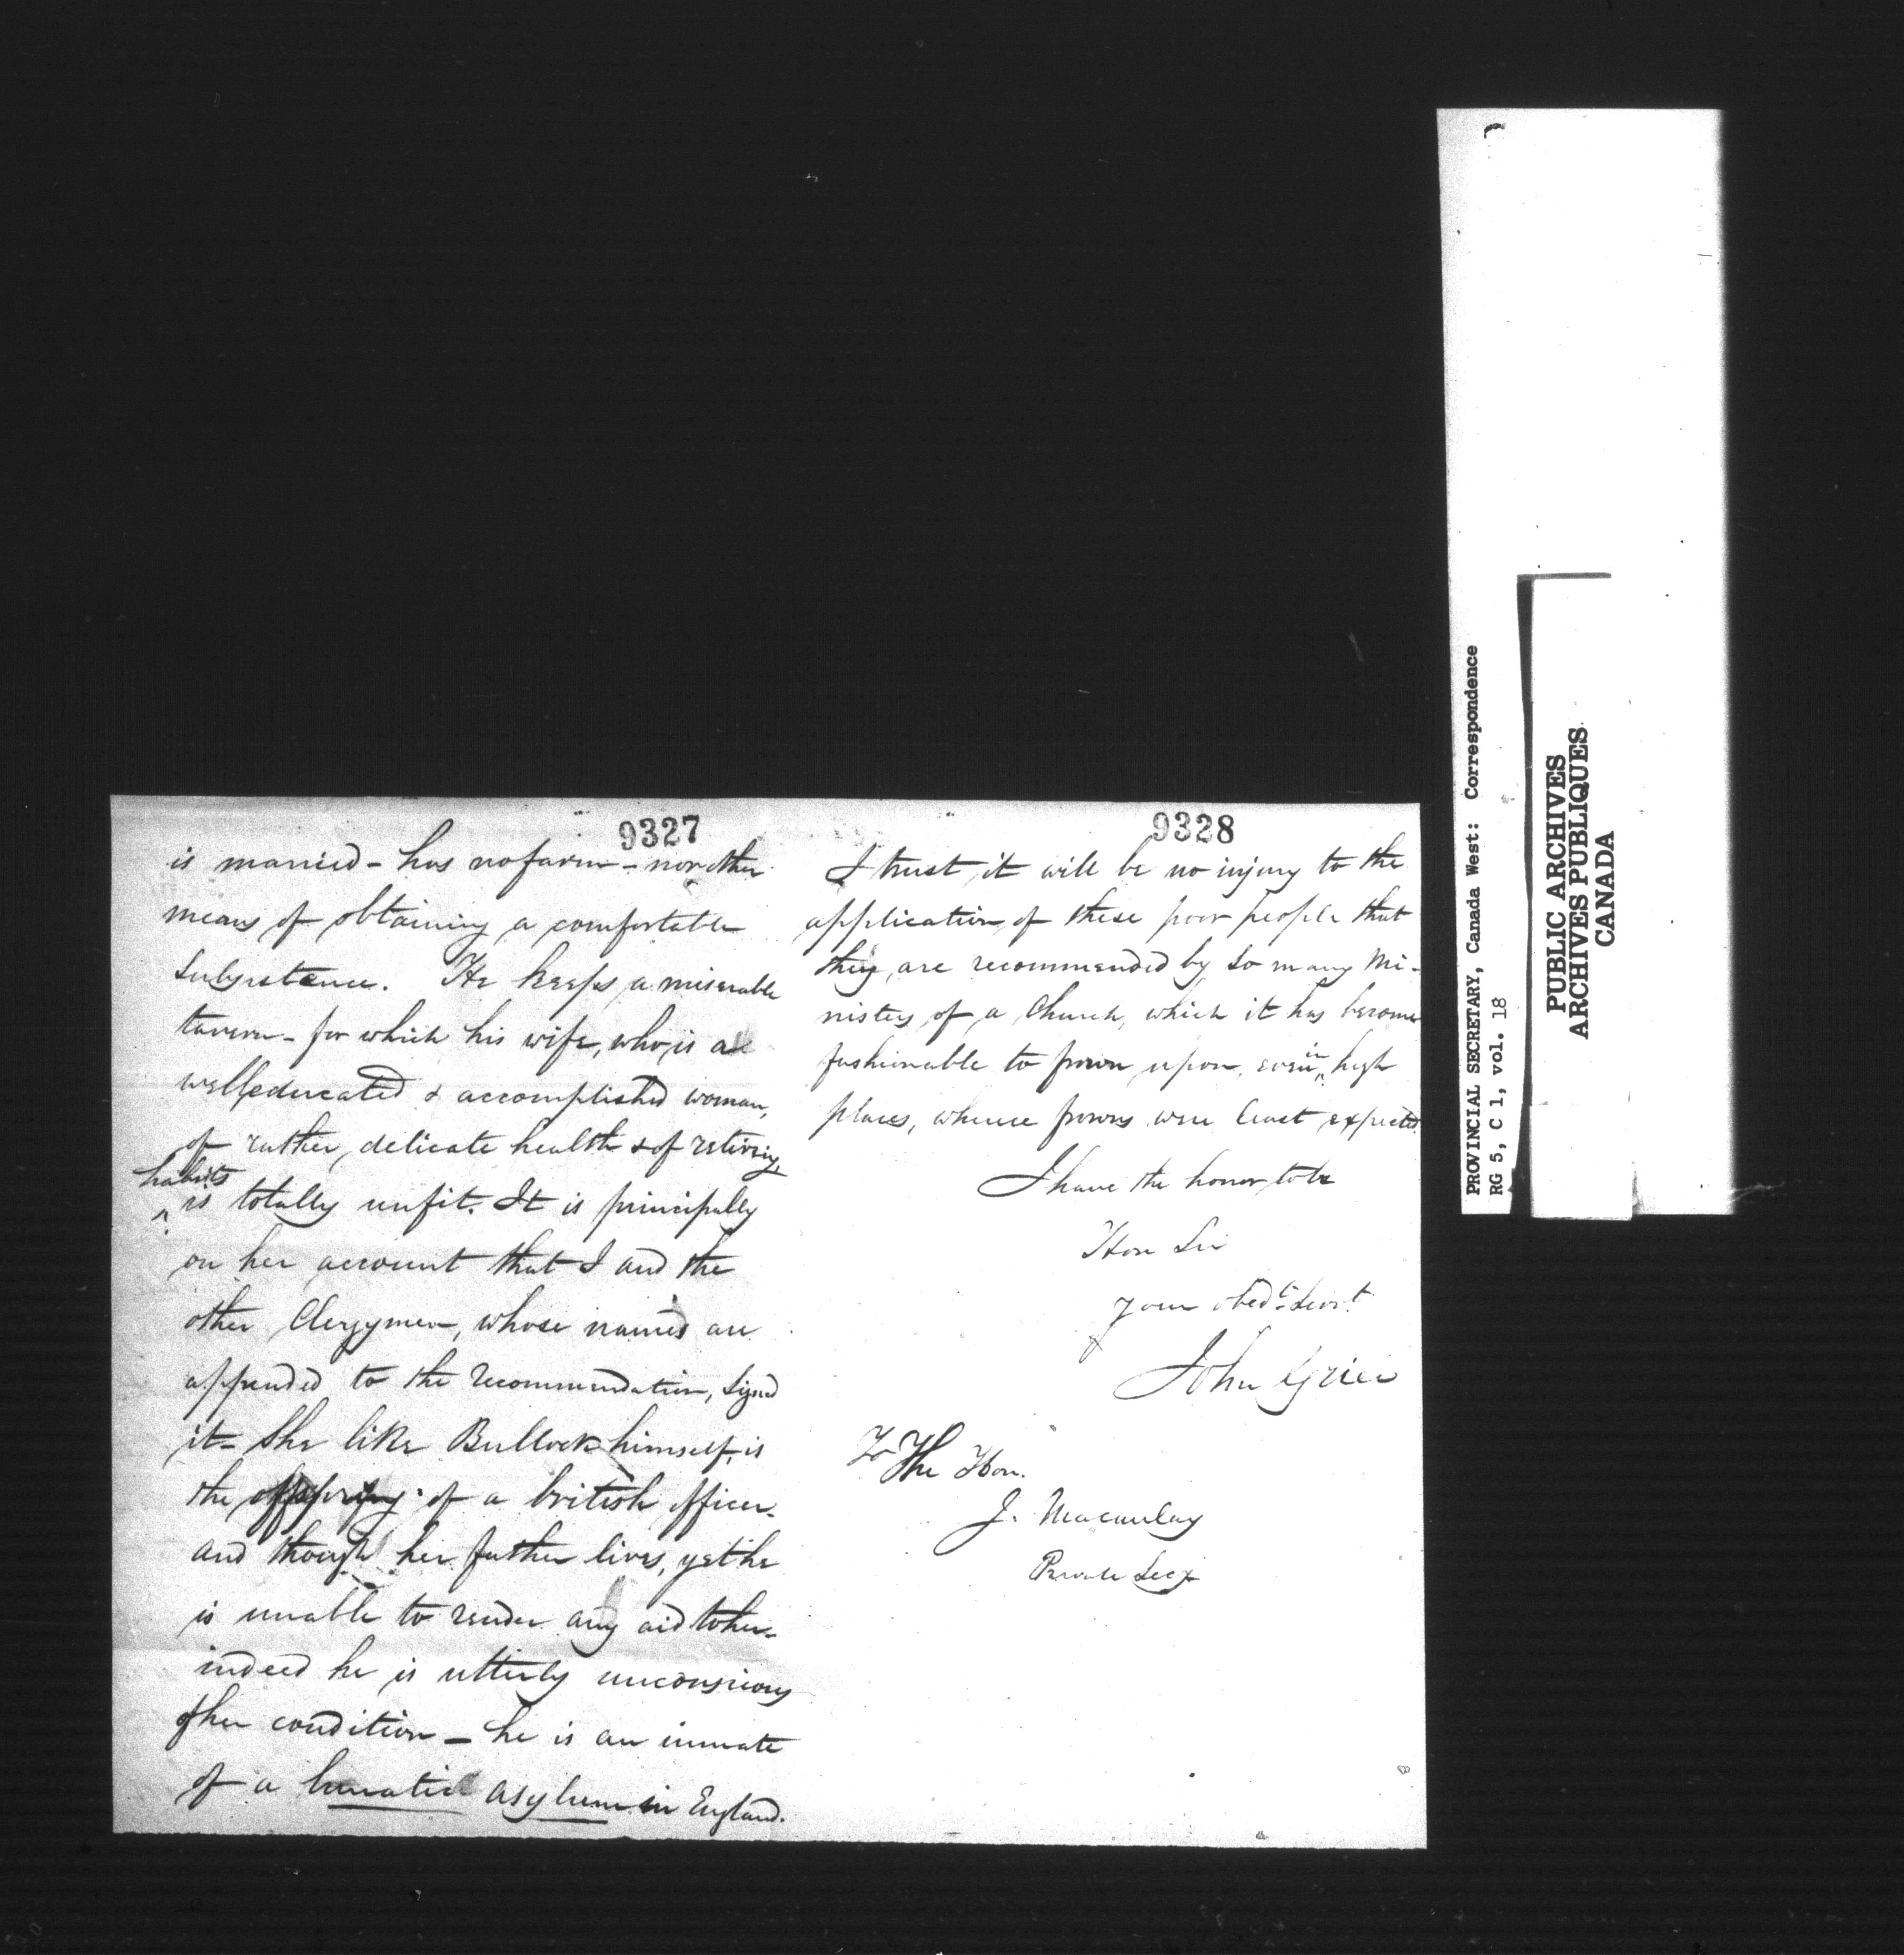 9327
is married - has no farm - nor other
means of obtaining a comfortable
subsistence. He keeps a miserable
tavern - for which his wife, who is a
well educated & accomplished woman,
of rather delicate health & of retiring
habits
^ is totally unfit. It is principally
on her account that I and the
other Clergymen, whose names are
appended to the recommendation, signed
it - She like Bullock himself, is
the offspring of a british officer -
and though her father lives, yet he
is unable to render any aid to her -
indeed he is utterly unconsious
of her condition - he is an inmate
of a lunatic asylum in England.
9328
I trust it will be no injury to the
application of these poor people that
they are recommended by so many Mi-
nisters of a Church, which it has become
fashionable to frown upon, even ^in high
places, whence frowns were least expected.
I have the honor to be
Hon Sir
your obedt. servt.
John Grier
To The Hon.
J. Macaulay
Private Secy
PROVINCIAL SECRETARY, Canada West: Correspondence
RG 5, C 1, vol. 18
PUBLIC ARCHIVES
ARCHIVES PUBLIQUES
CANADA